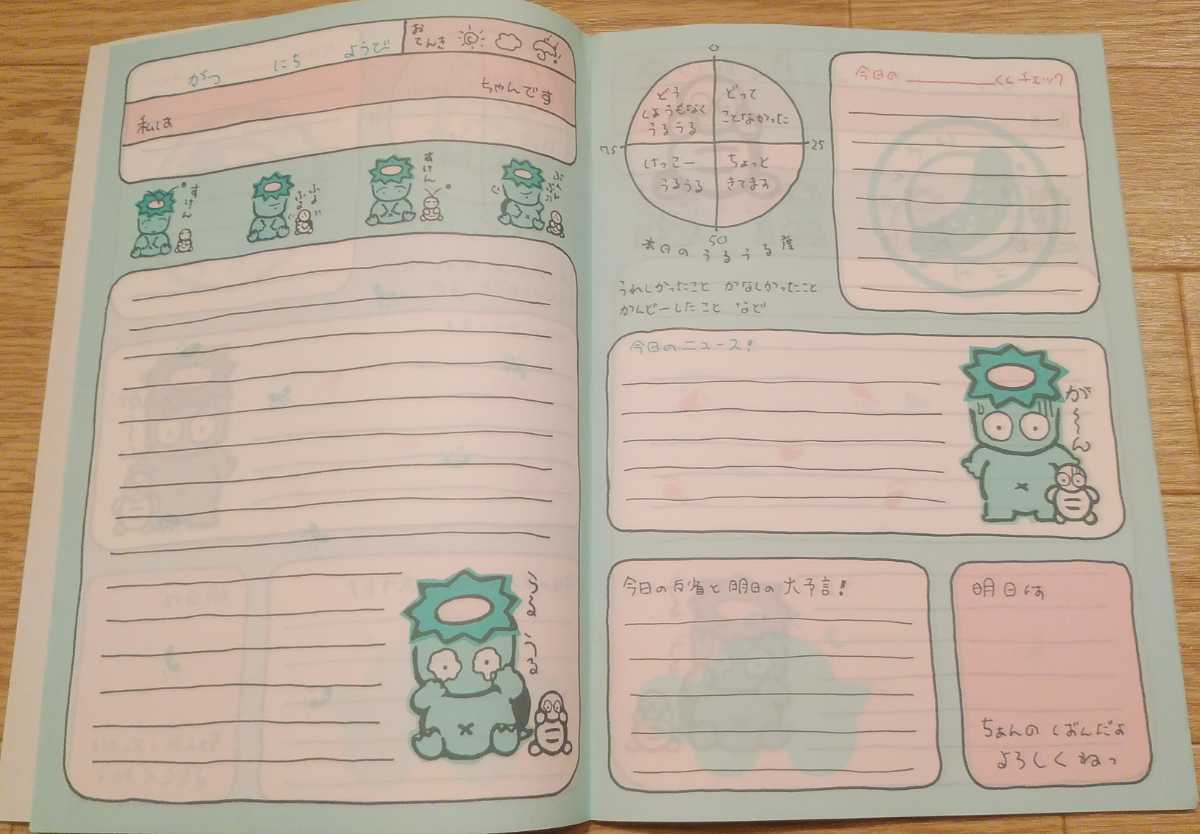 がつ にち ようび
おてんき
ちゃんです
私は
すけん
ふよ ふよ
すけん
ぷんぷん
うるうる
0
どうしようもなくうるうる
どってことなかった
75
25
けっこーうるうる
ちょっときてます
50
今日のうるうる度
今日の ＿＿＿＿＿くんチェック
うれしかったこと かなしかったこと
かんどーしたこと など
今日のニュース!
が〜〜ん
今日の反省と明日の大予言!
明日は
ちゃんの ばんだよ
よろしくねっ